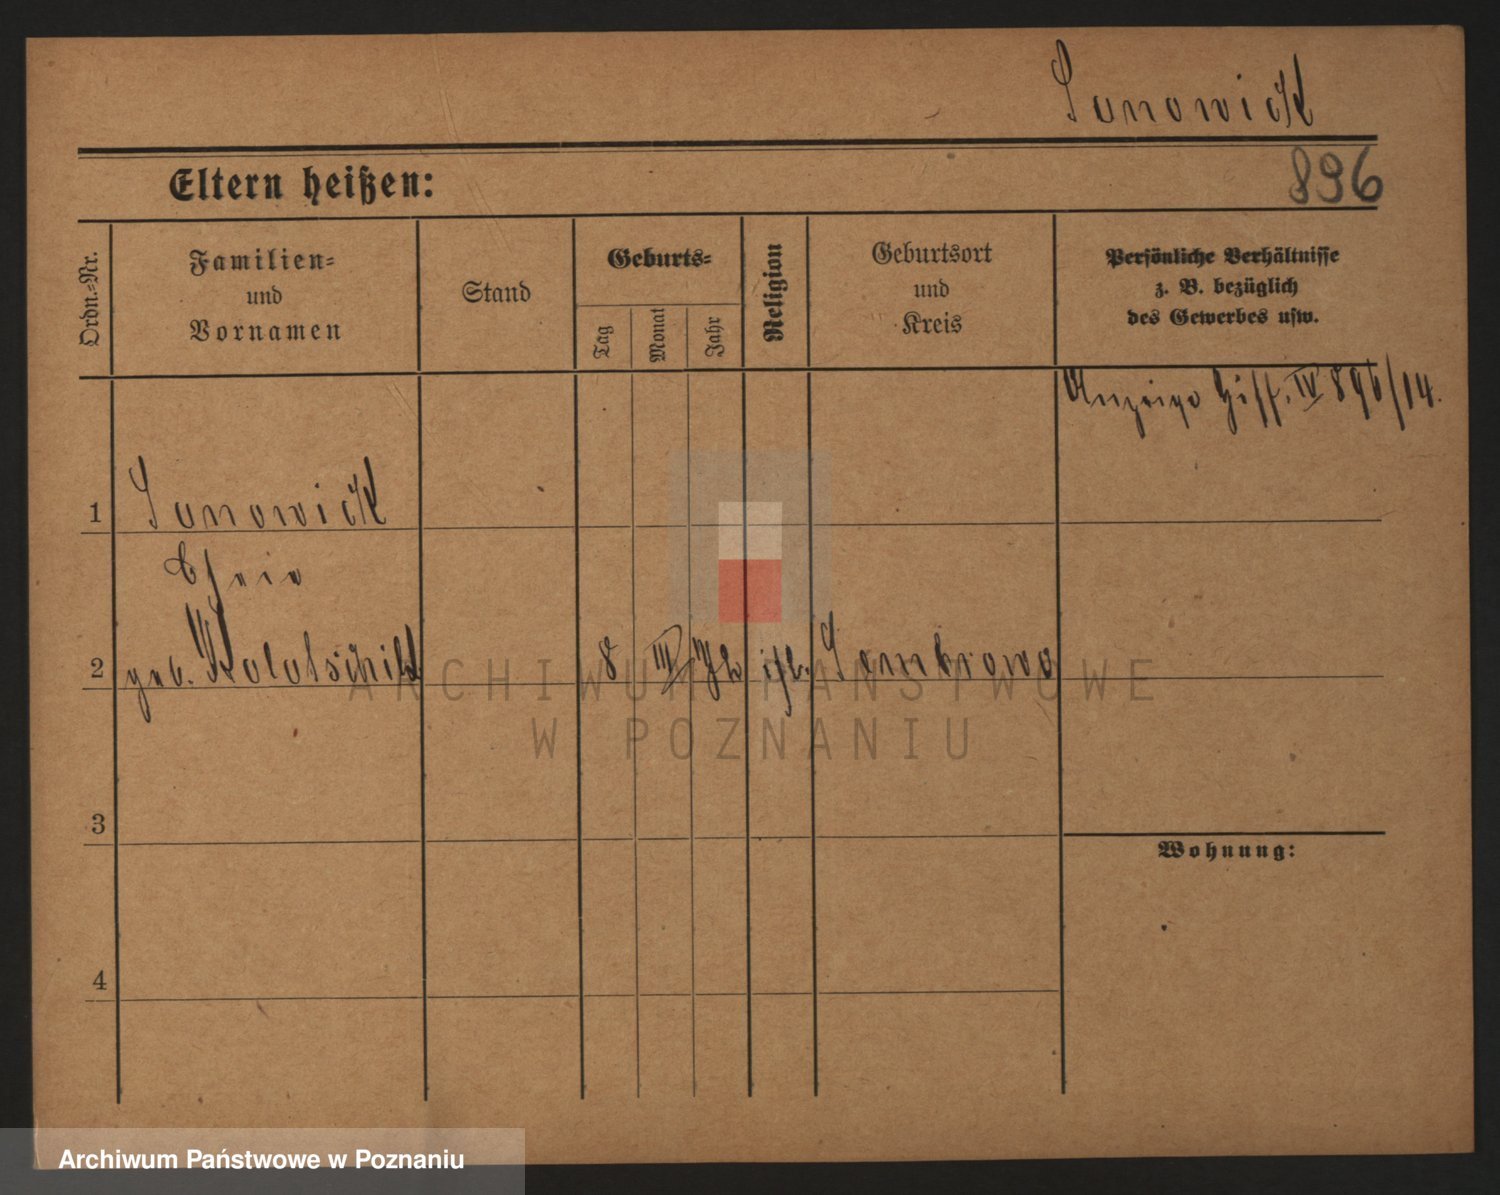 Janowick
896
Eltern heißen:
Ordn.-Nr.
Familien-
und
Vornamen
Stand
Geburts-
Tag
Monat
Jahr
Religion
Geburtsort
und
Kreis
Persönliche Verhältnisse
z. B. bezüglich
des Gewerbes usw.
Anzeige Hiss. IV 896/14.
1
2
geb.
8
III
isr.
3
4
Wohnung:
ARCHIWUM PAŃSTWOWE
W POZNANIU
Archiwum Państwowe w Poznaniu